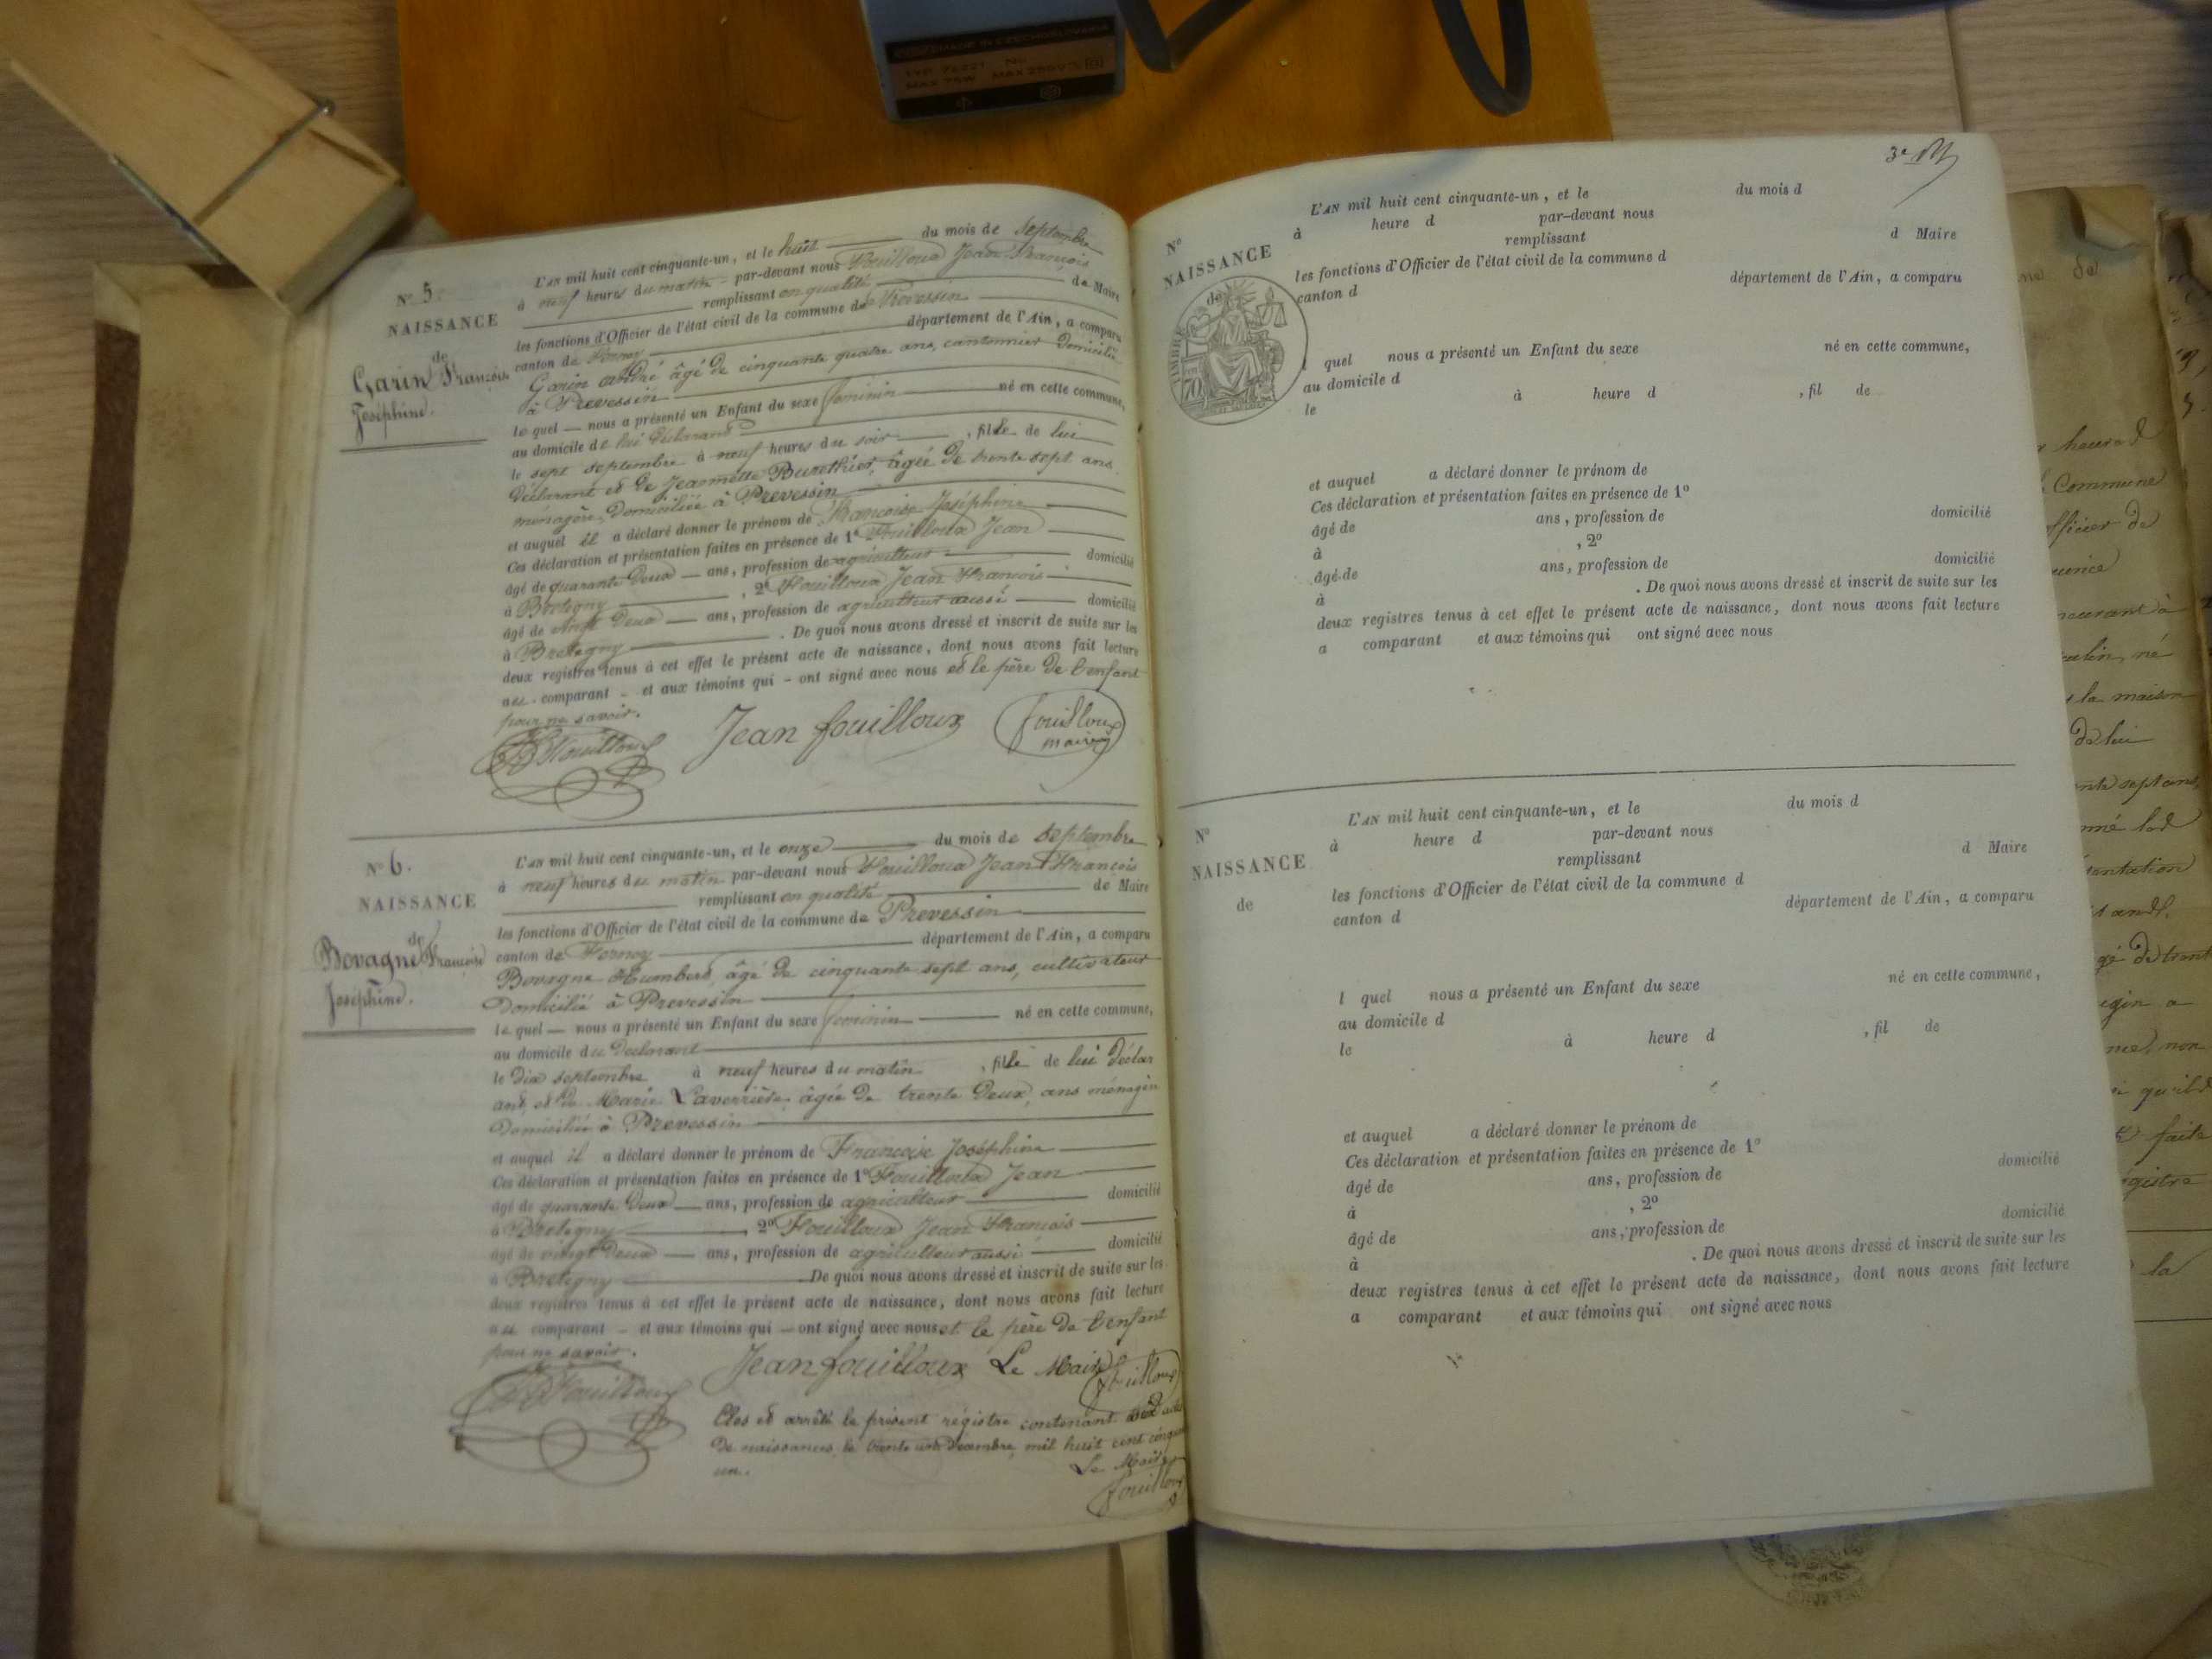 MADE IN CZECHOSLOVAKIA
N° 5.
NAISSANCE
de
Garin Françoise
Joséphine.
L'AN mil huit cent cinquante-un, et le huit du mois de Septembre
à neuf heures du matin par-devant nous Fouilloux Jean François
remplissant en qualité de Maire
les fonctions d'Officier de l'état civil de la commune de Prevessin
canton de Ferney département de l'Ain, a comparu
Garin André âgé de cinquante quatre ans, cantonnier domicilié
à Prevessin
le quel nous a présenté un Enfant du sexe féminin né en cette commune,
au domicile de lui déclarant
le sept septembre à neuf heures du soir , fille de lui
déclarant et de Jeannette âgée de trente sept ans
ménagère, domiciliée à Prevessin
et auquel il a déclaré donner le prénom de Françoise Joséphine
Ces déclaration et présentation faites en présence de 1° Fouilloux Jean
âgé de quarante deux ans, profession de agriculteur domicilié
à Bretigny , 2° Fouilloux Jean François
âgé de vingt deux ans, profession de agriculteur aussi domicilié
à Bretegny . De quoi nous avons dressé et inscrit de suite sur les
deux registres tenus à cet effet le présent acte de naissance, dont nous avons fait lecture
au comparant et aux témoins qui ont signé avec nous et le père de l'enfant
pour ne savoir.
Fouilloux Jean fouilloux fouilloux
maire
N° 6.
NAISSANCE
de
Bovagne Françoise
Joséphine.
L'AN mil huit cent cinquante-un, et le onze du mois de septembre
à neuf heures du matin par-devant nous Fouilloux Jean François
remplissant en qualité de Maire
les fonctions d'Officier de l'état civil de la commune de Prevessin
canton de Ferney département de l'Ain, a comparu
Bovagne Humbert, âgé de cinquante sept ans, cultivateur
domicilié à Prevessin
le quel nous a présenté un Enfant du sexe féminin né en cette commune,
au domicile du déclarant
le dix septembre à neuf heures du matin , fille de lui déclar
ant, et de Marie Laverrière, âgée de trente deux ans ménagère
domiciliée à Prevessin
et auquel il a déclaré donner le prénom de Françoise Joséphine
Ces déclaration et présentation faites en présence de 1° Fouilloux Jean
âgé de quarante deux ans, profession de agriculteur domicilié
à Bretegny 2° Fouilloux Jean François
âgé de vingt deux ans, profession de agriculteur aussi domicilié
à Bretegny De quoi nous avons dressé et inscrit de suite sur les
deux registres tenus à cet effet le présent acte de naissance, dont nous avons fait lecture
au comparant et aux témoins qui ont signé avec nous et le père de l'enfant
pour ne savoir.
Fouilloux Jean fouilloux Le Maire Fouilloux
Clos et arrêté le présent régistre contenant
de naissances, le trente un décembre, mil huit cent cinquante
un. Le Maire
fouilloux
3e
N°
NAISSANCE
de
TIMBRE
70
L'AN mil huit cent cinquante-un, et le du mois d
à heure d par-devant nous
remplissant d Maire
les fonctions d'Officier de l'état civil de la commune d
canton d département de l'Ain, a comparu
l quel nous a présenté un Enfant du sexe né en cette commune,
au domicile d
le à heure d , fil de
et auquel a déclaré donner le prénom de
Ces déclaration et présentation faites en présence de 1°
âgé de ans, profession de domicilié
à , 2°
âgé de ans, profession de domicilié
à . De quoi nous avons dressé et inscrit de suite sur les
deux registres tenus à cet effet le présent acte de naissance, dont nous avons fait lecture
a comparant et aux témoins qui ont signé avec nous
N°
NAISSANCE
de
L'AN mil huit cent cinquante-un, et le du mois d
à heure d par-devant nous
remplissant d Maire
les fonctions d'Officier de l'état civil de la commune d
canton d département de l'Ain, a comparu
l quel nous a présenté un Enfant du sexe né en cette commune,
au domicile d
le à heure d , fil de
et auquel a déclaré donner le prénom de
Ces déclaration et présentation faites en présence de 1°
âgé de ans, profession de domicilié
à , 2°
âgé de ans, profession de domicilié
à . De quoi nous avons dressé et inscrit de suite sur les
deux registres tenus à cet effet le présent acte de naissance, dont nous avons fait lecture
a comparant et aux témoins qui ont signé avec nous
heure d
Commune
officier de
né
la maison
de lui
sept ans,
gé de trent
non
faite
la